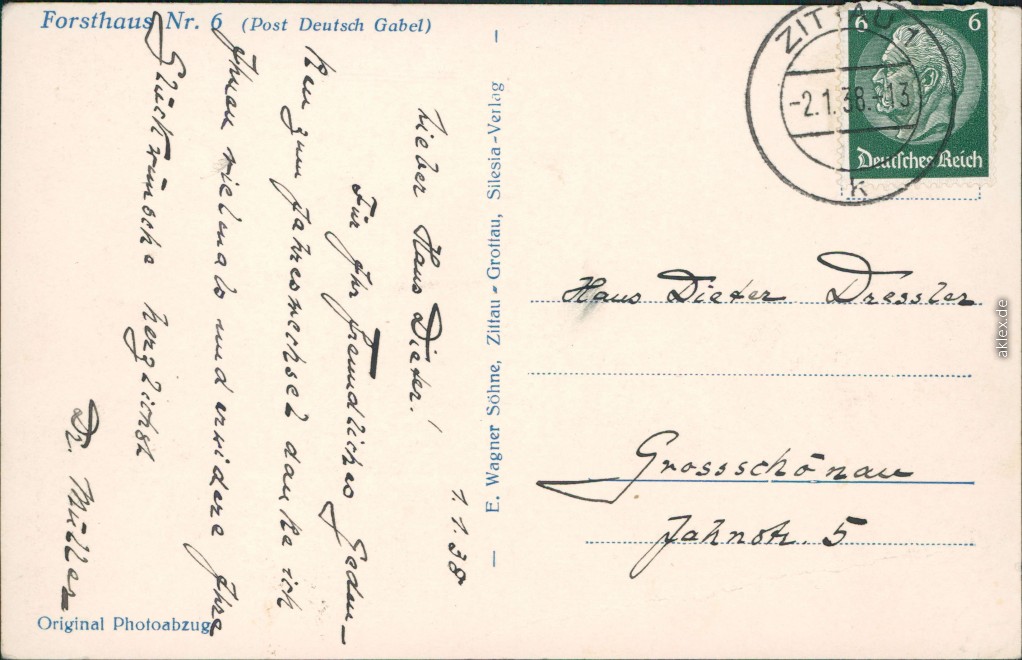 Forsthaus Nr. 6 (Post Deutsch Gabel)
1.1.38
Lieber Hans Dieter!
Für Ihr freundliches Geden-
ken zum Jahreswechsel danke ich
Ihnen vielmals und erwidere Ihre
Glückwünsche herzlichst
Dr. Müller
Original Photoabzug
E. Wagner Söhne, Zittau - Grottau, Silesia-Verlag
ZITTAU 1
-2.1.38.-13
k
6 6
Deutsches Reich
Hans Dieter Dressler
Grossschönau
Jahnstr. 5
aklex.de